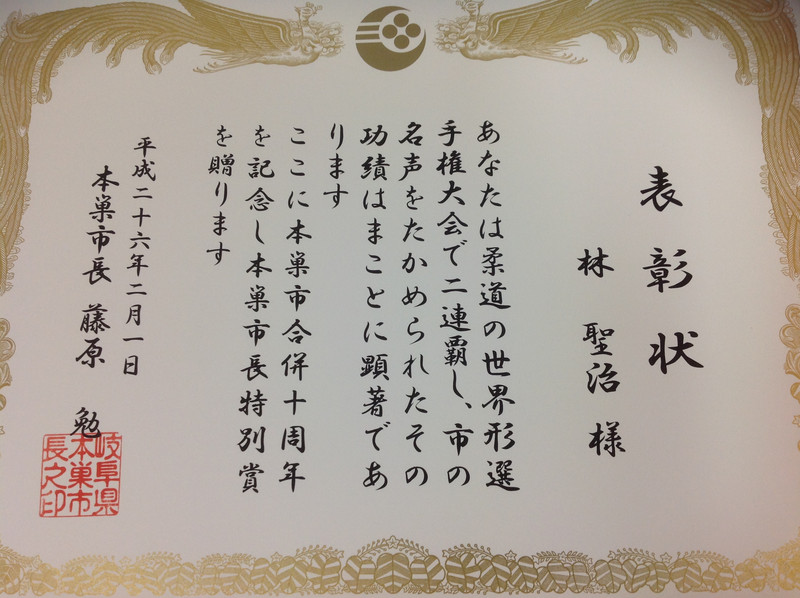 表彰状
林 聖治 様
あなたは柔道の世界形選
手権大会で二連覇し、市の
名声をたかめられたその
功績はまことに顕著であ
ります
ここに本巣市合併十周年
を記念し本巣市長特別賞
を贈ります
平成二十六年二月一日
本巣市長 藤原 勉
岐阜県
本巣市
長之印